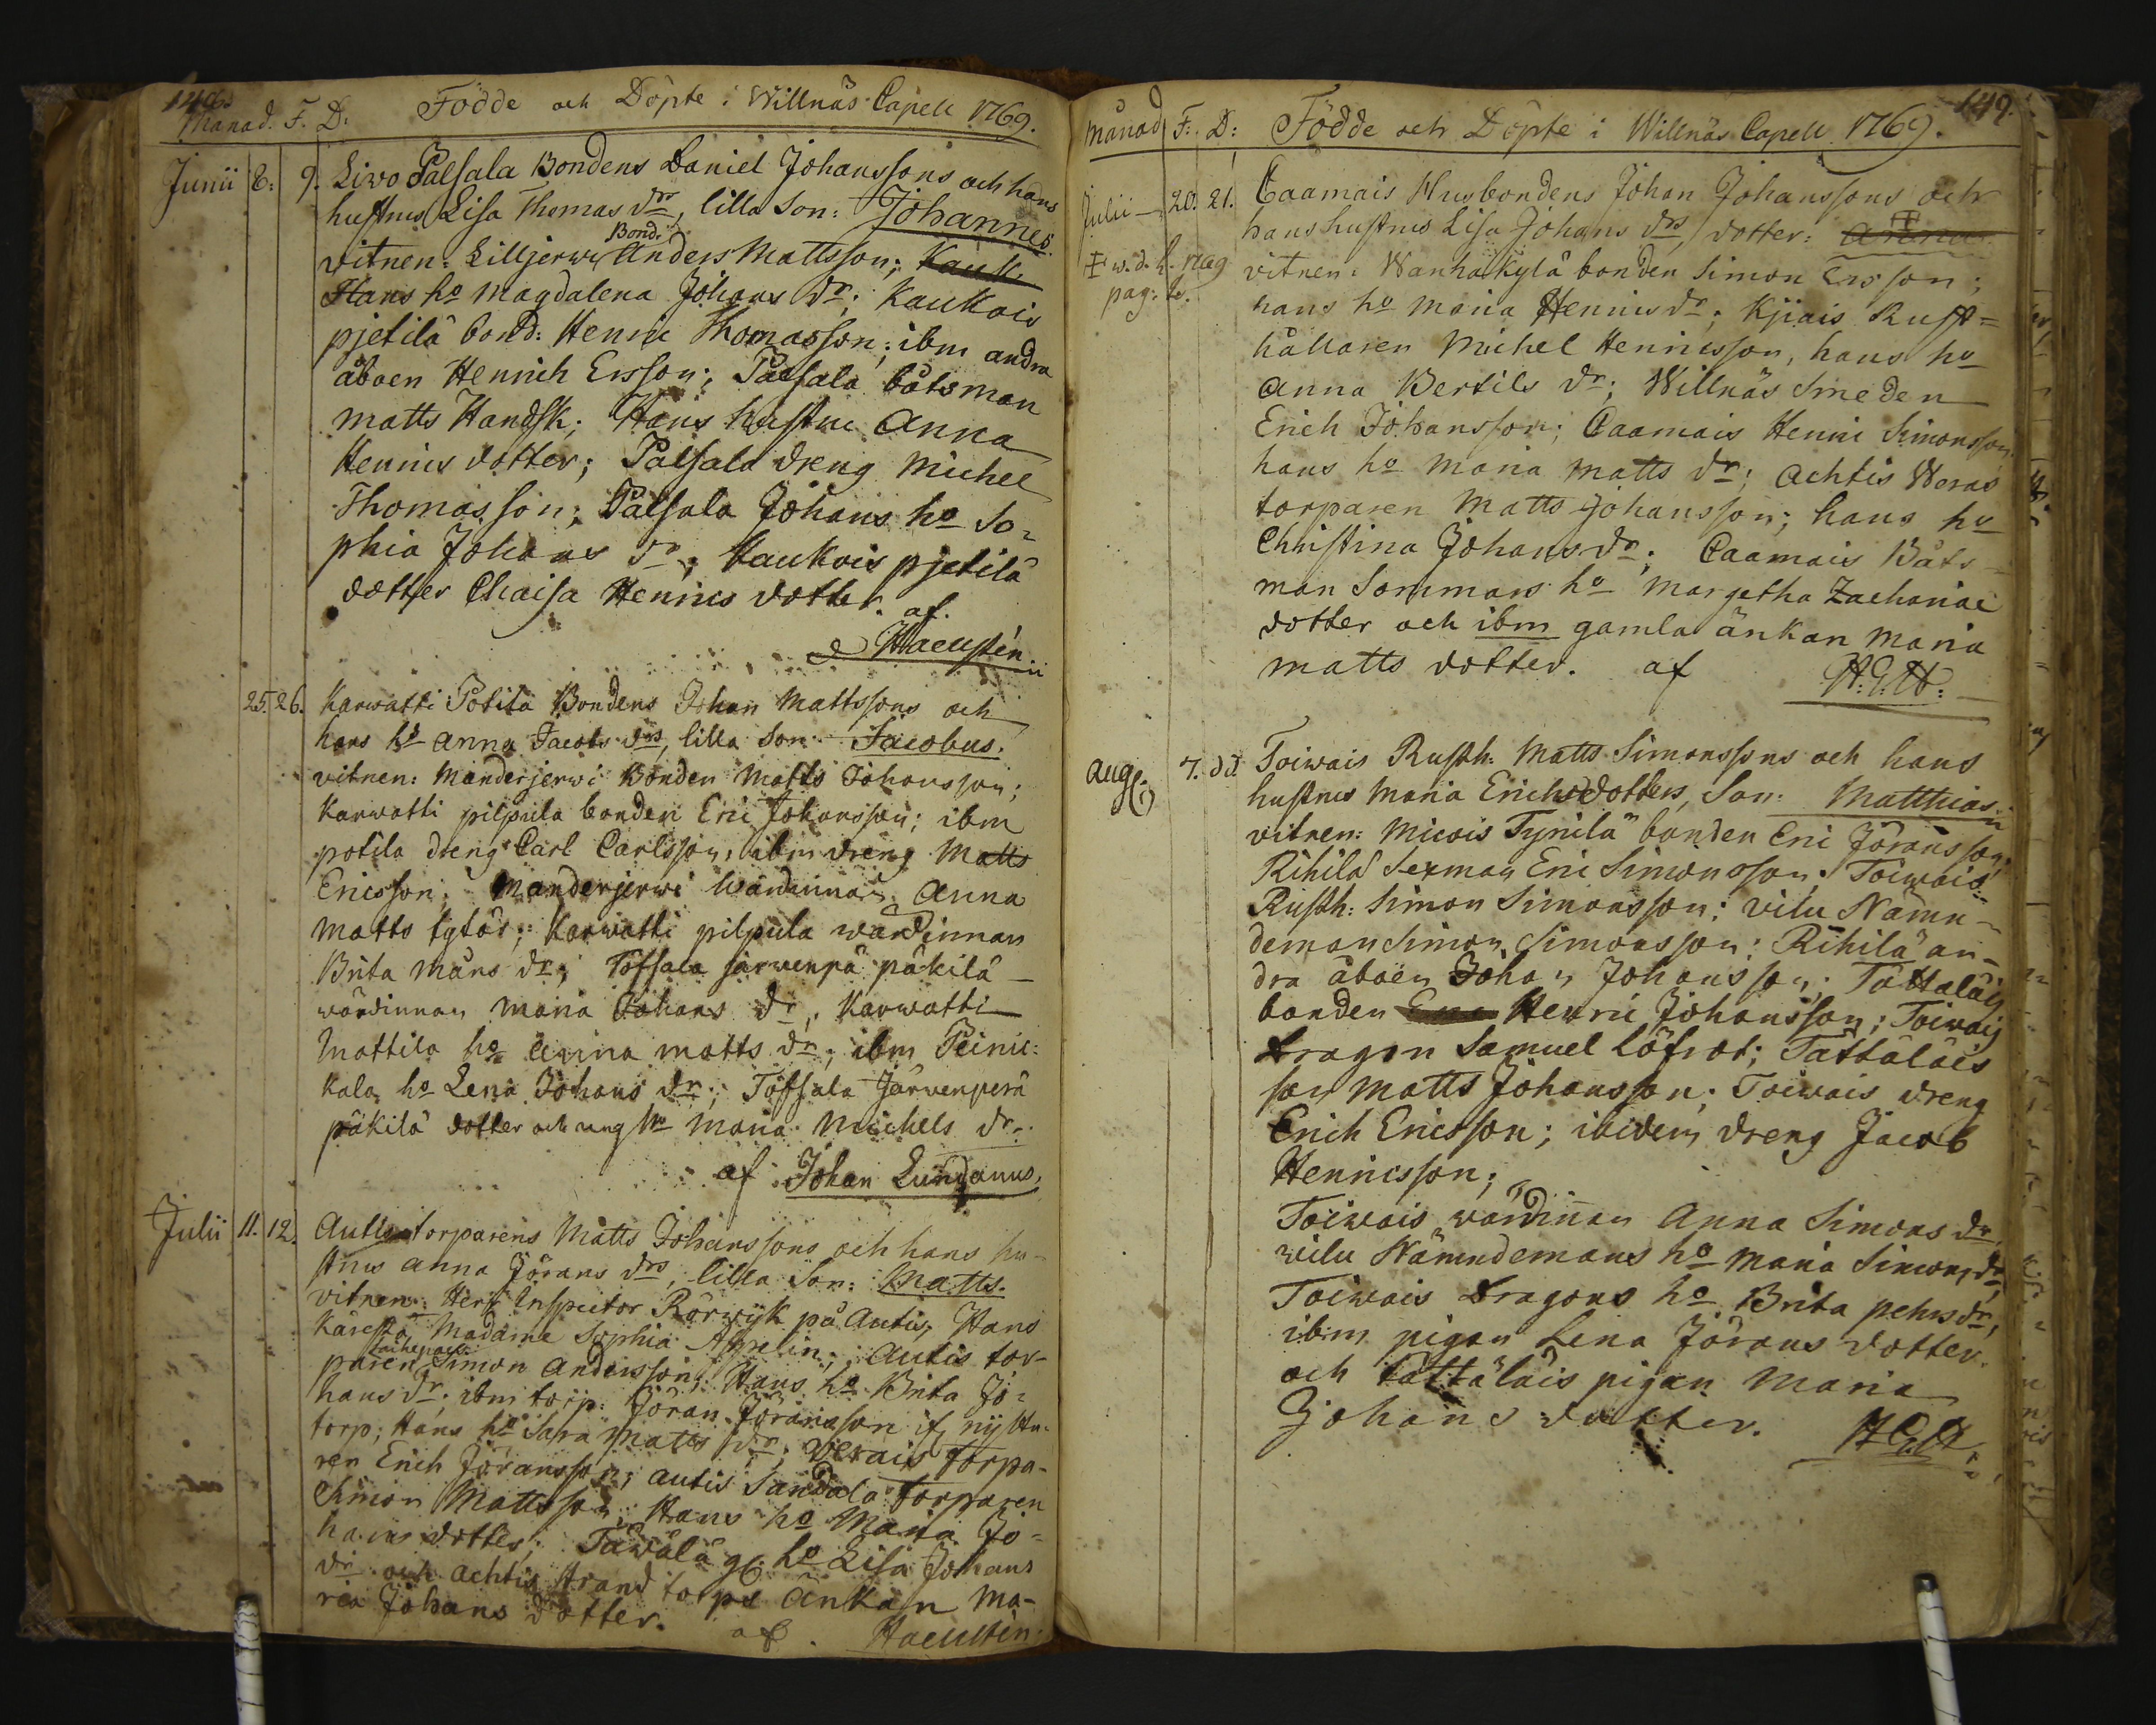 148.
Månad. F. D: Födde och Döpte i Willnäs Capell 1769.
Junii 8: 9. Livo Palsala Bondens Daniel Johanssons och hans
hustrus Lisa Thomas drs, lilla Son: Johannes.
vitnen: Lilljerwi Bond. Anders Mattsson; Kauk.
Hans ho Magdalena Johans dr; Kaukois
pjetilä bond: Henric Thomasson; ibm andra
åboen Henrich Ersson; Palsala båtsman
Matts Handsk; Hans hustru Anna
Henrics dotter; Palsala dreng Michel
Thomasson; Palsala Johans ho So-
phia Johans dr; Kaukois pjetilä
dotter Chaisa Henrics dotter. af
Hacksten
25. 26. Karwatti Potila Bondens Johan Mattssons och
hans ho Anna Jacobs drs, lilla Son: Jacobus.
vitnen: Manderjerwi Bonden Matts Johansson;
Karwatti pilpula bonden Eric Johansson; ibm
potila dreng Carl Carlsson, ibm dreng Matts
Ericsson; Manderjerwi wärdinnan Anna
Matts tytär; Karwatti pilpula wärdinnan
Brita Måns dr; Töfsala järvenpä päkilä
wärdinnan Maria Johans dr; Karwatti
Mattila ho Anna Matts dr; ibm Peinic-
kala ho Lena Johans dr; Töfsala Järvenperä
päkilä dotter och ung ho Maria Michels dr.
af Johan Lundanus.
Julii 11. 12. Autis torparens Matts Johanssons och hans hu-
strus Anna Jörans drs, lilla Son: Matts.
vitnen: Herr Inspector Rörwyk på Autis, Hans
Käresta Madame Sophia Appelin; Autis tor-
paren Simon Andersson; Hans ho Brita Jo-
hans dr; ibm torp: Jöran Jöransson if,
torp; Hans ho Sara Matts dr; Verais torpa-
ren Erich Jöransson; autis Sandala torparen
Simon Mattsson; Hans ho Maria Jo-
hans dotter; Tawälä gl. ho Lisa Johans
dr och achtis Strand torps Änkan Ma-
ria Johans dotter. af. Hacksten.
149.
Månad F: D: Födde och Döpte i Willnäs Capell 1769.
Julii 20. 21. Caamais Husbondens Johan Johanssons och
hans hustrus Lisa Johans drs, dotter: Anna
vitnen: Wanhakylä bonden Simon Ersson;
pag:
hans ho Maria Henrics dr; Kjiais Rust-
hållaren Michel Henricsson, hans ho
Anna Bertils dr; Willnäs Smeden
Erich Johansson; Caamais Henric Simonsson
hans ho Maria Matts dr; Achtis Weras
torparen Matts Johansson; hans ho
Christina Johans dr; Caamais Båts-
man Sommars ho Margetha Zachariae
dotter och ibm gamla änkan Maria
Matts dotter. af H.
Aug. 7. dd. Toiwais Rusth: Matts Simonssons och hans
hustrus Maria Erichsdotters, Son: Matthias
vitnen: Micois Tynilä bonden Eric Jöransson;
Rihilä Sexman Eric Simonsson; Toiwais
Rusth: Simon Simonsson; vilu Nämn-
deman Simon Simonsson; Rihilä an-
dra åboen Johan Johansson; Tättälais
bonden Henric Johansson; Toiwais
Dragon Samuel Löfrot; Tättäläis
son Matts Johansson; Toiwais dreng
Erich Ericsson; ibidem dreng Jacob
Henricsson;
Toiwais wärdinnan Anna Simons dr,
vilu Nämndemans ho Maria Simons dr,
Toiwais Dragons ho Brita pehrs dr,
ibm pigan Lena Jörans dotter.
och tättäläis pigan Maria
Johans dotter.